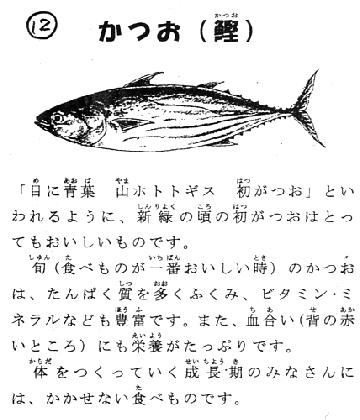 ⑫
かつお（鰹）
「目に青葉　山ホトトギス　初がつお」とい
われるように、新緑の頃の初がつおはとっ
てもおいしいものです。
旬（食べものが一番おいしい時）のかつお
は、たんぱく質を多くふくみ、ビタミン・ミ
ネラルなども豊富です。また、血合い（背の赤
いところ）にも栄養がたっぷりです。
体をつくっていく成長期のみなさんに
は、かかせない食べものです。